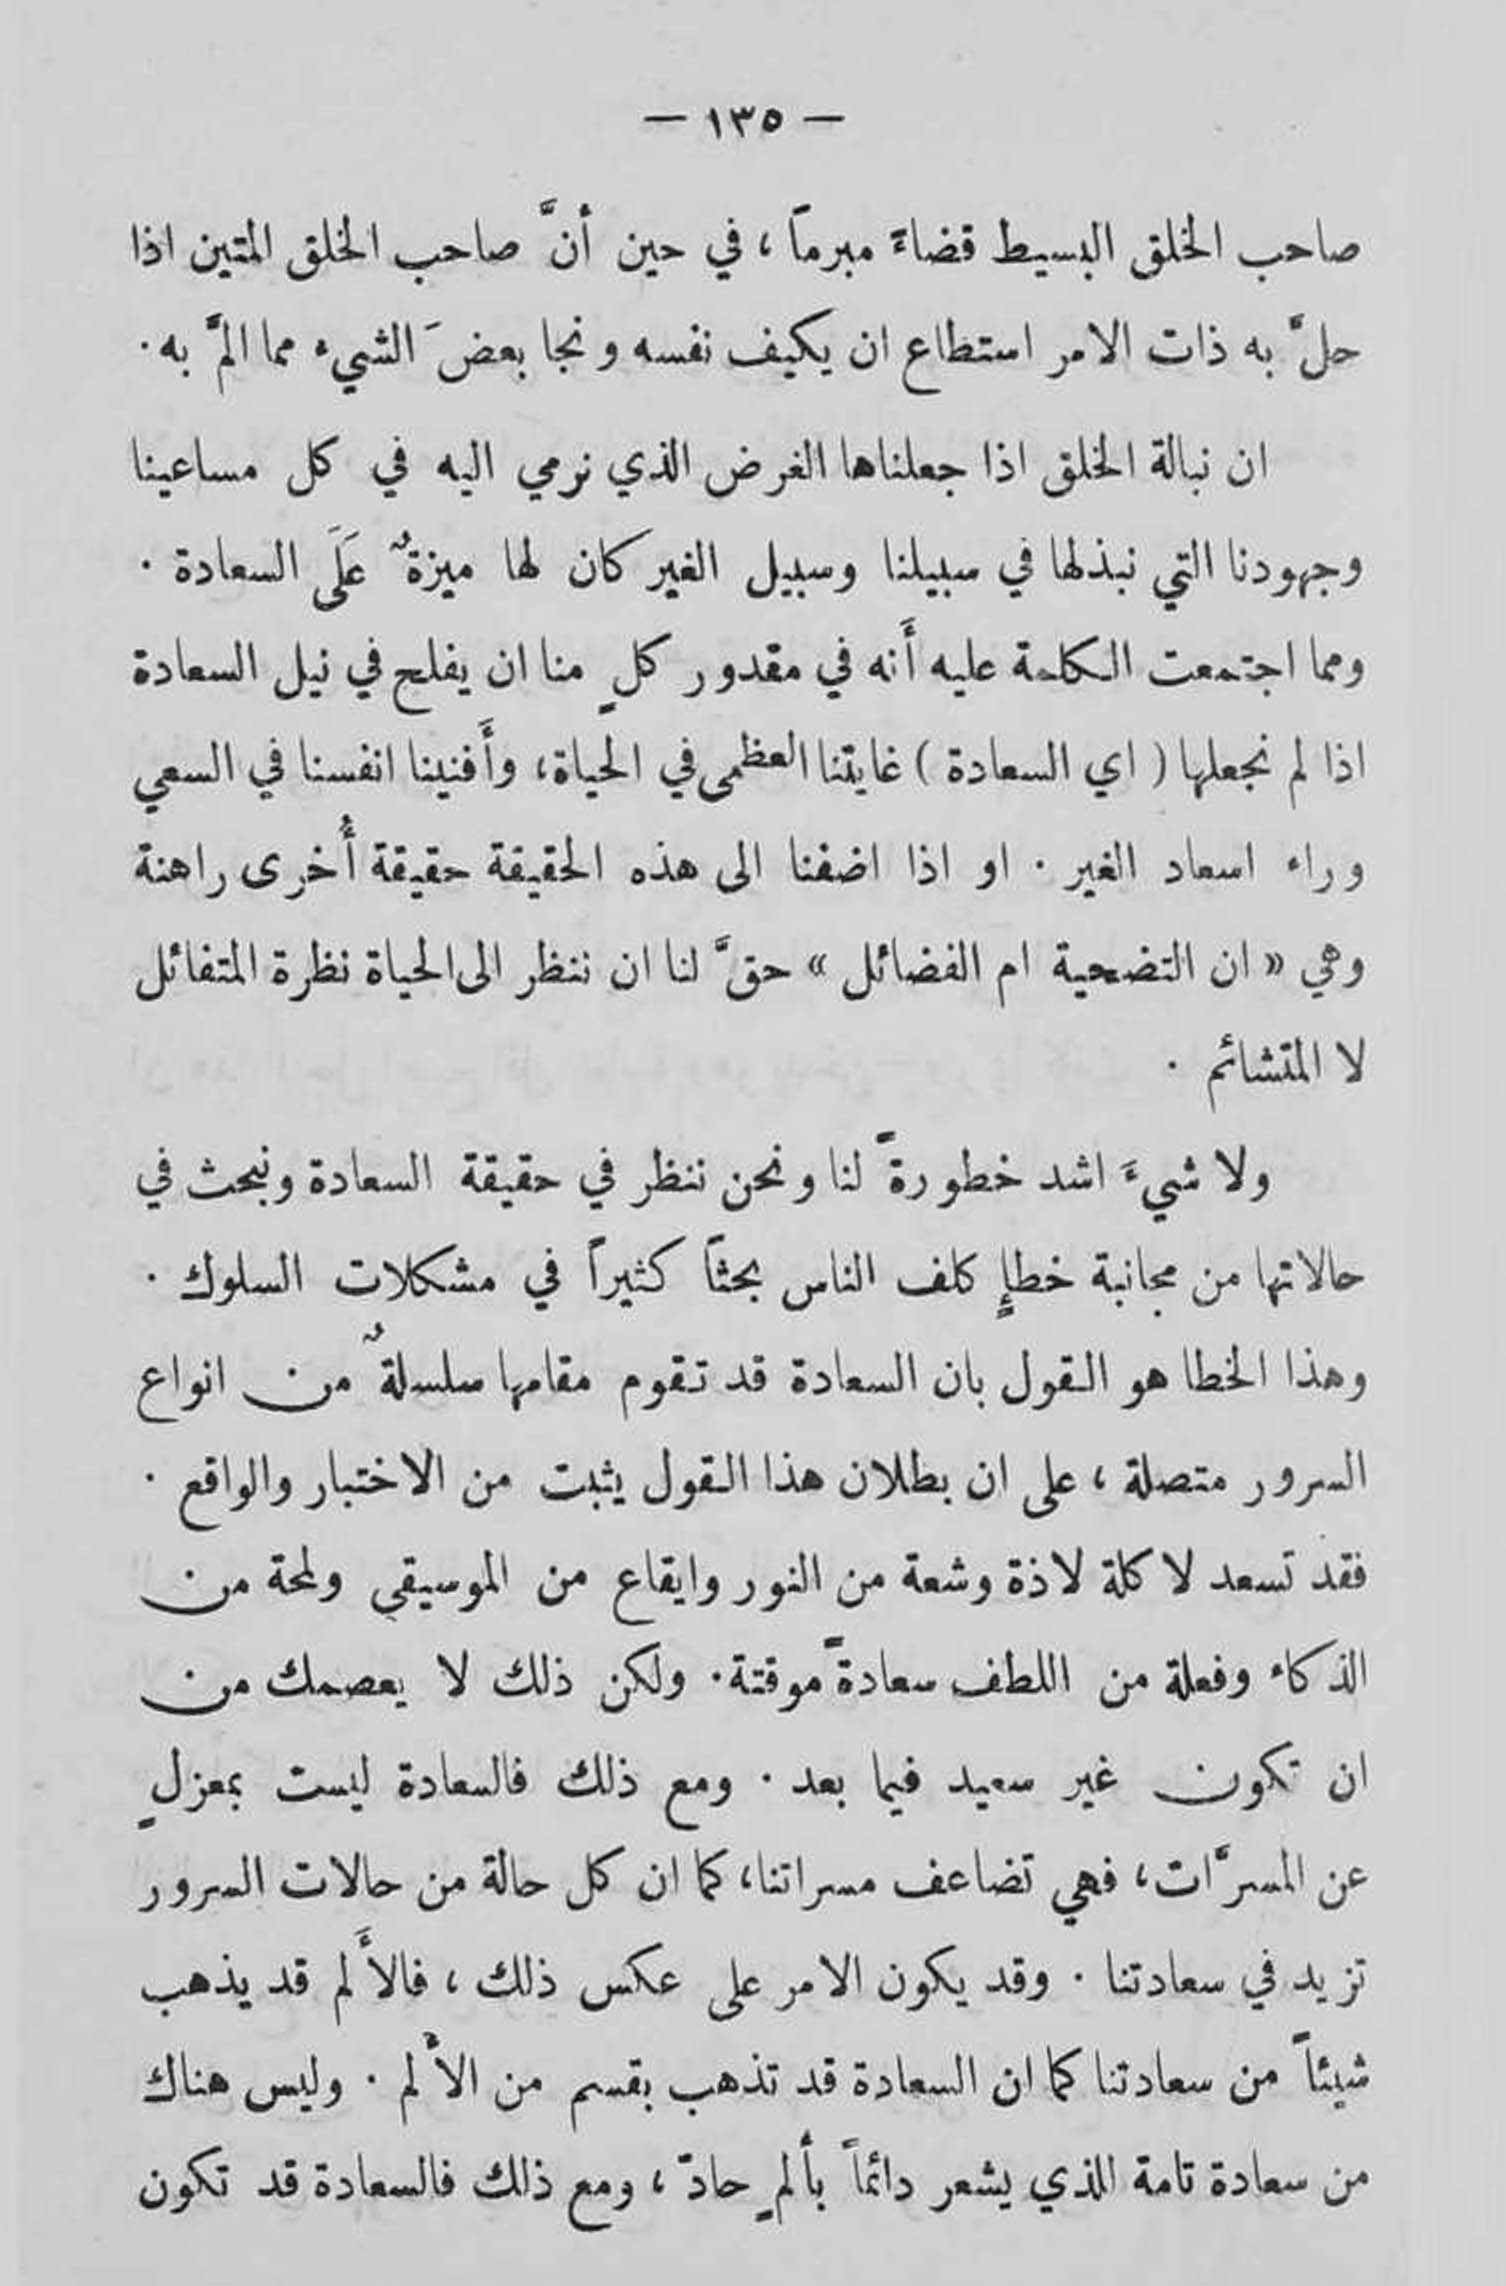 — ١٣٥ —
صاحب الخلق البسيط قضاءً مبرماً ، في حين أنَّ صاحب الخلق المتين اذا
حلَّ به ذات الامر استطاع ان يكيف نفسه ونجا بعضَ الشيء مما المَّ به .
ان نبالة الخلق اذا جعلناها الغرض الذي نرمي اليه في كل مساعينا
وجهودنا التي نبذلها في سبيلنا وسبيل الغير كان لها ميزةٌ عَلَى السعادة .
ومما اجتمعت الكلمة عليه أَنه في مقدور كلٍ منا ان يفلح في نيل السعادة
اذا لم نجعلها ( اي السعادة ) غايتنا العظمى في الحياة ، وأَفنينا انفسنا في السعي
وراء اسعاد الغير . او اذا اضفنا الى هذه الحقيقة حقيقة أُخرى راهنة
وهي « ان التضحية ام الفضائل » حقَّ لنا ان ننظر الى الحياة نظرة المتفائل
لا المتشائم .
ولا شيءَ اشد خطورةً لنا ونحن ننظر في حقيقة السعادة ونبحث في
حالاتها من مجانبة خطإٍ كلف الناس بحثاً كثيراً في مشكلات السلوك .
وهذا الخطا هو القول بان السعادة قد تقوم مقامها سلسلةٌ من انواع
السرور متصلة ، على ان بطلان هذا القول يثبت من الاختبار والواقع .
فقد تسعد لاكلة لاذة وشعة من النور وايقاع من الموسيقى ولمحة من
الذكاء وفعلة من اللطف سعادةً موقتة . ولكن ذلك لا يعصمك من
ان تكون غير سعيد فيما بعد . ومع ذلك فالسعادة ليست بمعزلٍ
عن المسرَّات ، فهي تضاعف مسراتنا ، كما ان كل حالة من حالات السرور
تزيد في سعادتنا . وقد يكون الامر على عكس ذلك ، فالأَلم قد يذهب
شيئاً من سعادتنا كما ان السعادة قد تذهب بقسم من الألم . وليس هناك
من سعادة تامة للذي يشعر دائماً بألمٍ حادّ ، ومع ذلك فالسعادة قد تكون